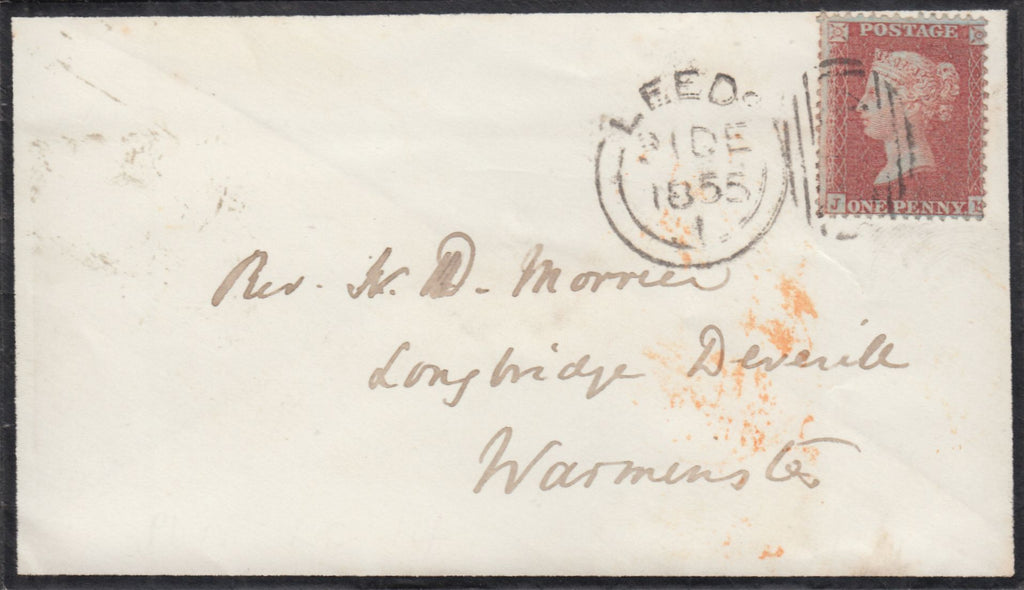 POSTAGE
J ONE PENNY
LEEDS
DE
1855
1
Rev. H. D. Morrice
Longbridge Deverill
Warminster